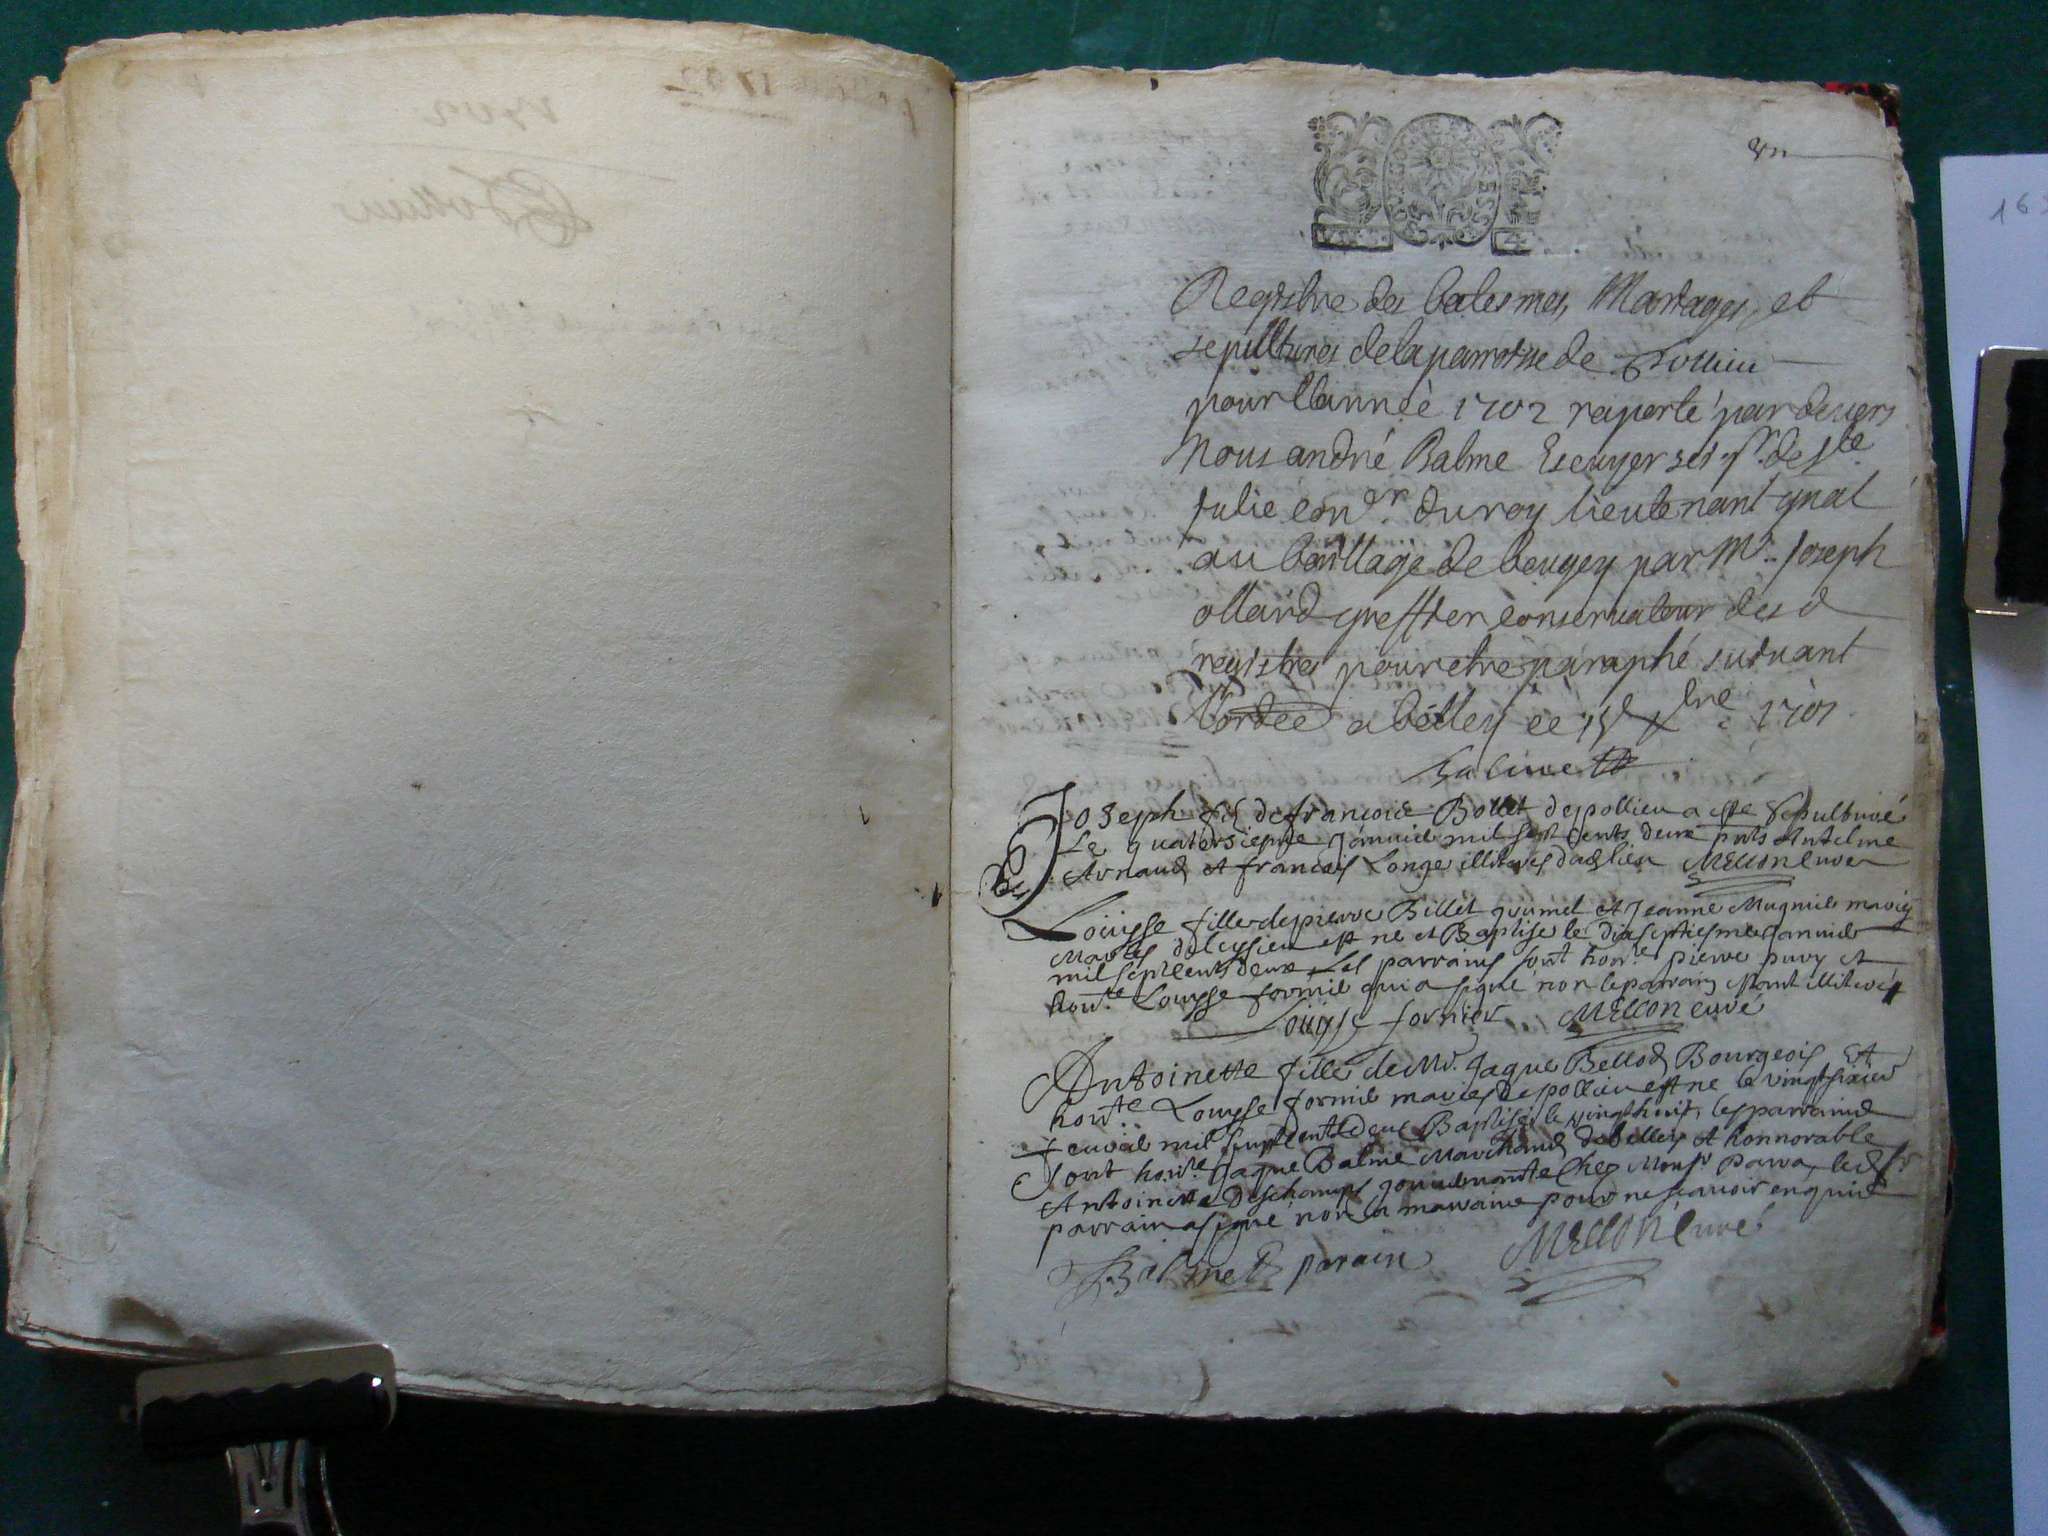 un
Registre des batesmes, Mariages, et
sepultures de la parroisse de Pollieu
pour l'année 1702 raporté par devers
Nous andré Balme Escuyer sei.gr de Ste
Julie con.er du roy lieutenant gnal
au bailliage de beugey par Mr. Joseph
ollard greffier conservateur des d
registres pour etre paraphé suivant
l'ordce a belley ce 15e Xbre 1701
Balme
Joseph fils de francois Bollet de pollieu a este sepulturé
Le quatorsiesme Janvier mil sept cents deux pnts Antelme
Arnaud et francois Longe illiterés dud lieu MELLON curé
Louyse fille de pierre Billet grumel et Jeanne Mugnier mariez
mariés de leysieu est ne et Baptise le dixseptiesme Janvier
mil sept cents deux Les parrains sont hon.le pierre puvy et
hon.te Louyse fornier qui a signé non le parrain estant illiteré
Louyse fornier MELLON curé
Antoinette fille de Mr. Jaque Bellod Bourgeois Et
hon.te Louyse fornier mariés de pollieu est ne le vingt sixieme
fevrier mil sept cents deux Baptisée le vingt huit, les parrains
sont hon.le Jaque Balme Marchand de belley et honnorable
Antoinette Deschamps gouvernante Chez Monsr parra, led Sr
parrain a signé non la marraine pour ne scavoir enquise
Balme parain MELLON Curé
163